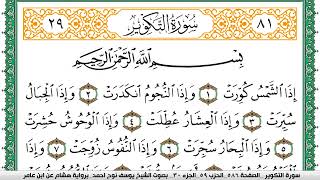 ٢٩ سُورَةُ التَّكْوِيرِ ٨١
بِسْمِ ٱللَّهِ ٱلرَّحْمَٰنِ ٱلرَّحِيمِ
إِذَا ٱلشَّمْسُ كُوِّرَتْ ١ وَإِذَا ٱلنُّجُومُ ٱنكَدَرَتْ ٢ وَإِذَا ٱلْجِبَالُ
سُيِّرَتْ ٣ وَإِذَا ٱلْعِشَارُ عُطِّلَتْ ٤ وَإِذَا ٱلْوُحُوشُ حُشِرَتْ
٥ وَإِذَا ٱلْبِحَارُ سُجِّرَتْ ٦ وَإِذَا ٱلنُّفُوسُ زُوِّجَتْ ٧ وَإِذَا
سورة التكوير . الصفحة ٥٨٦ . الحزب ٥٩ . الجزء ٣٠ . بصوت الشيخ يوسف نوح احمد . برواية هشام عن ابن عامر